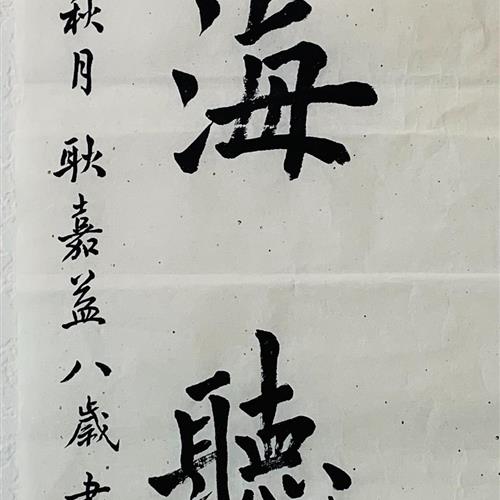 海聽
秋月 耿嘉益八歲書